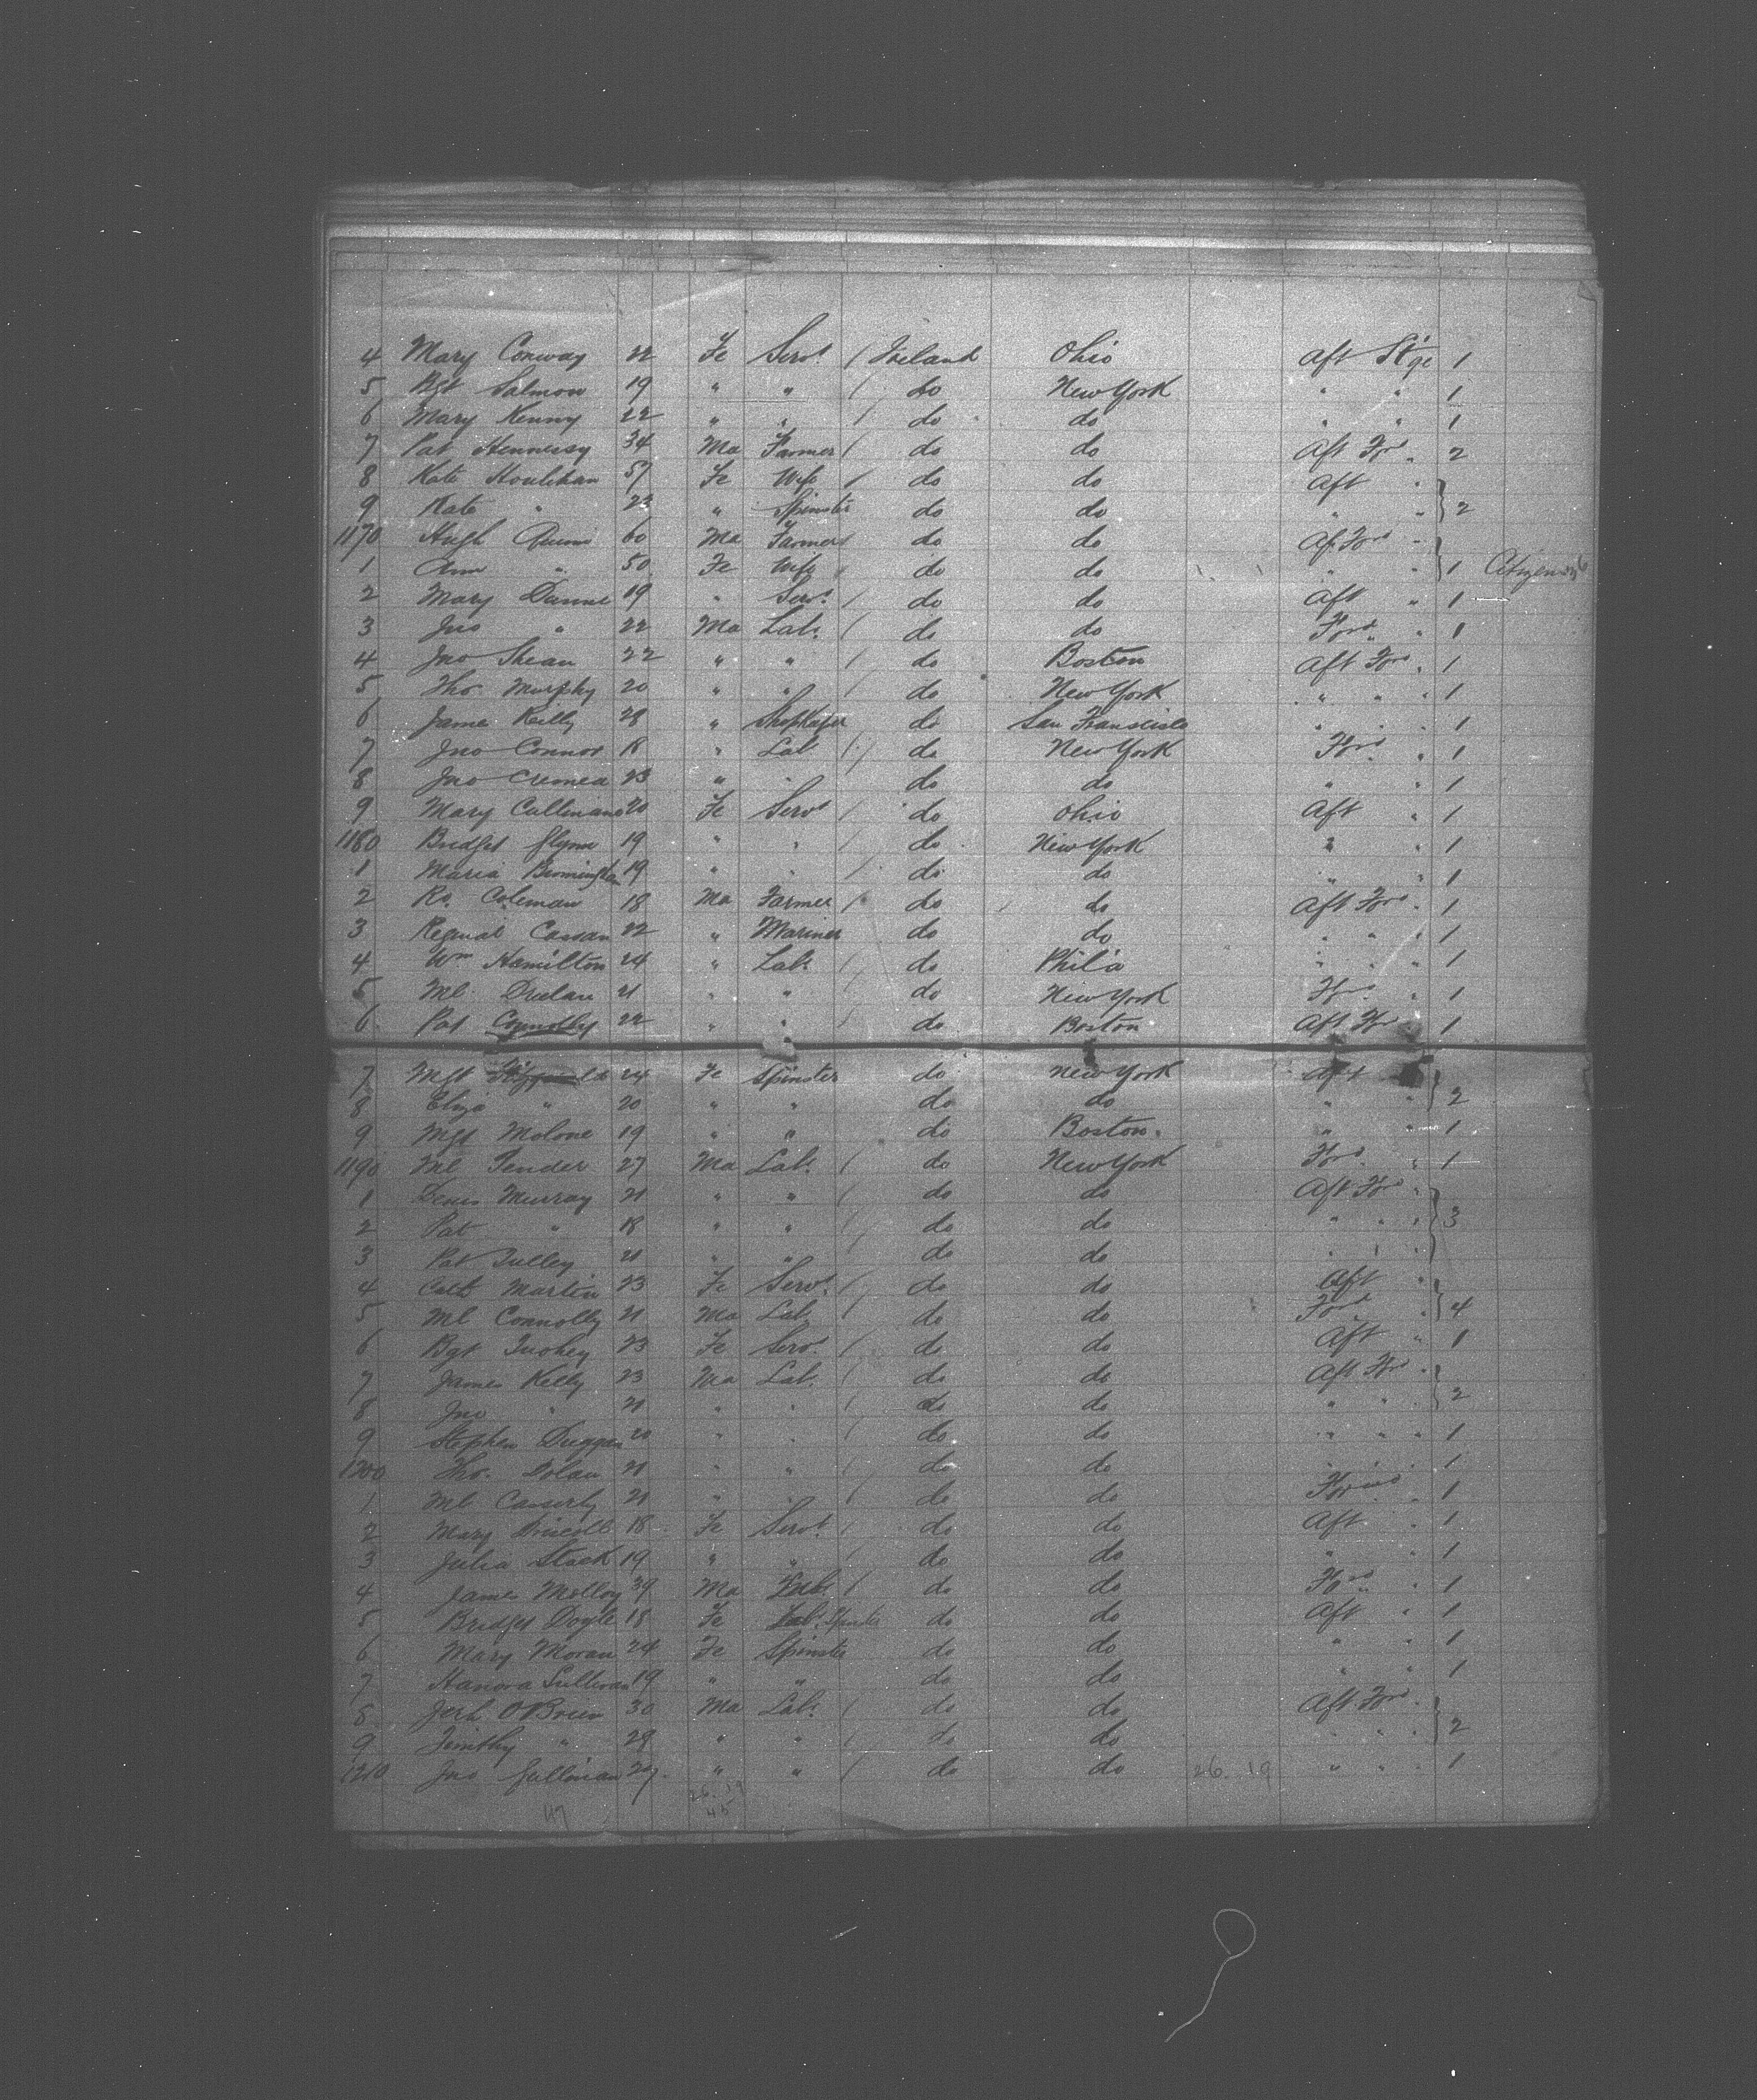 4 Mary Conway 22 Fe Servt / Ireland Ohio Aft St'ge 1
5 Bgt Salmon 19 " " / do New York " " 1
6 Mary Kenny 22 " " / do do " " 1
7 Pat Hennessy 34 Ma Farmer / do do Aft For " 2
8 Kate Houlihan 57 Fe Wife / do do Aft "
9 Kate " 23 " Spinster do do " " } 2
1170 Hugh Quinn 60 Ma Farmer do do Aft Ford "
1 Ann " 50 Fe Wife do do " " } 1
2 Mary Dunne 19 " Servt / do do Aft " 1
3 Jno " 22 Ma Labr / do do Ford " 1
4 Jno Shean 22 " " / do Boston Aft Ford " 1
5 Tho Murphy 20 " " / do New York " " " 1
6 James Reilly 28 " do San Francisco " " 1
7 Jno Connor 18 " Lab / do New York Ford " 1
8 Jno 23 " " do do " " 1
9 Mary Cullinane 20 Fe Servt / do Ohio Aft " 1
1180 Bridget Glynn 19 " " / do New York " " 1
1 Maria 19 " " / do do " " 1
2 Rd Coleman 18 Ma Farmer / do do Aft Ford " 1
3 Cassan 22 " Mariner do do " " 1
4 Wm Hamilton 24 " Labr / do Phil'a " " " 1
5 Ml 21 " " / do New York Ford " 1
6 Pat Connolly 22 " " / do Boston Aft For " 1
7 Mgt 24 Fe Spinster do New York Aft
8 Eliza " 20 " " do do " " } 2
9 Mgt Molone 19 " " do Boston " " 1
1190 Ml Pender 27 Ma Labr / do New York Ford " 1
1 Denis Murray 21 " " / do do Aft Ford "
2 Pat " 18 " " / do do " " " } 3
3 Pat Tulley 21 " " / do do " " "
4 Cath Martin 23 Fe Servt / do do Aft "
5 Ml Connolly 21 Ma Lab / do do Ford " } 4
6 Bgt Tuohey 23 Fe Servt / do do Aft " 1
7 James Kelly 23 Ma Lab / do do Aft For "
8 Jno " 21 " " / do do " " } 2
9 Stephen Duggan 20 " " / do do " " " 1
1200 Tho. Dolan 21 " " / do do " " 1
1 Ml Casserly 21 " " / do do Forwd " 1
2 Mary Driscoll 18 Fe Servt / do do Aft " 1
3 Julia Stack 19 " " / do do " " 1
4 James Molloy 39 Ma Labr / do do Ford " 1
5 Bridget Doyle 18 Fe Spinster do do Aft " 1
6 Mary Moran 24 Fe Spinster do do " " 1
7 Hanora Sullivan 19 " " do do " " 1
8 Jerh O'Brien 30 Ma Labr / do do Aft Ford "
9 Timthy " 29 " " / do do " " " } 2
1210 Jno 27 " " / do do 26. 19 " " " 1
26. 19
45